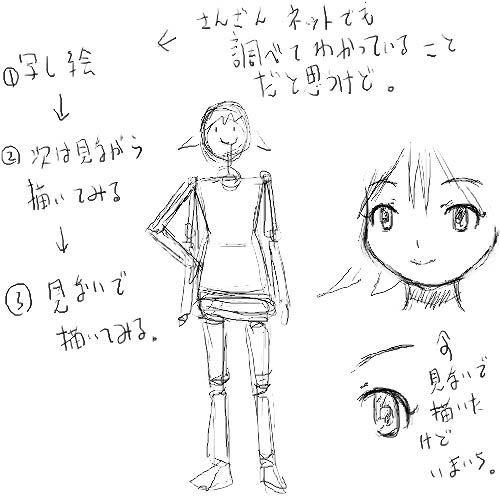 ← さんざん ネットでも
調べてわかっていること
だと思うけど。
①写し絵
↓
②次は見ながら
描いてみる
↓
③見ないで
描いてみる。
⇧
見ないで
描いた
けど
いまいち。